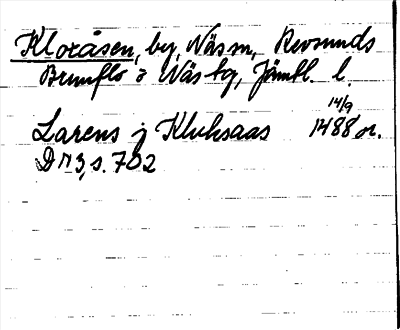 Kloxåsen, by, Näs sn, Revsunds
Brunflo o Näs tg, Jämtl. l.
14/9
Larens j Kluksaas 1488 or.
DN 3, s. 702